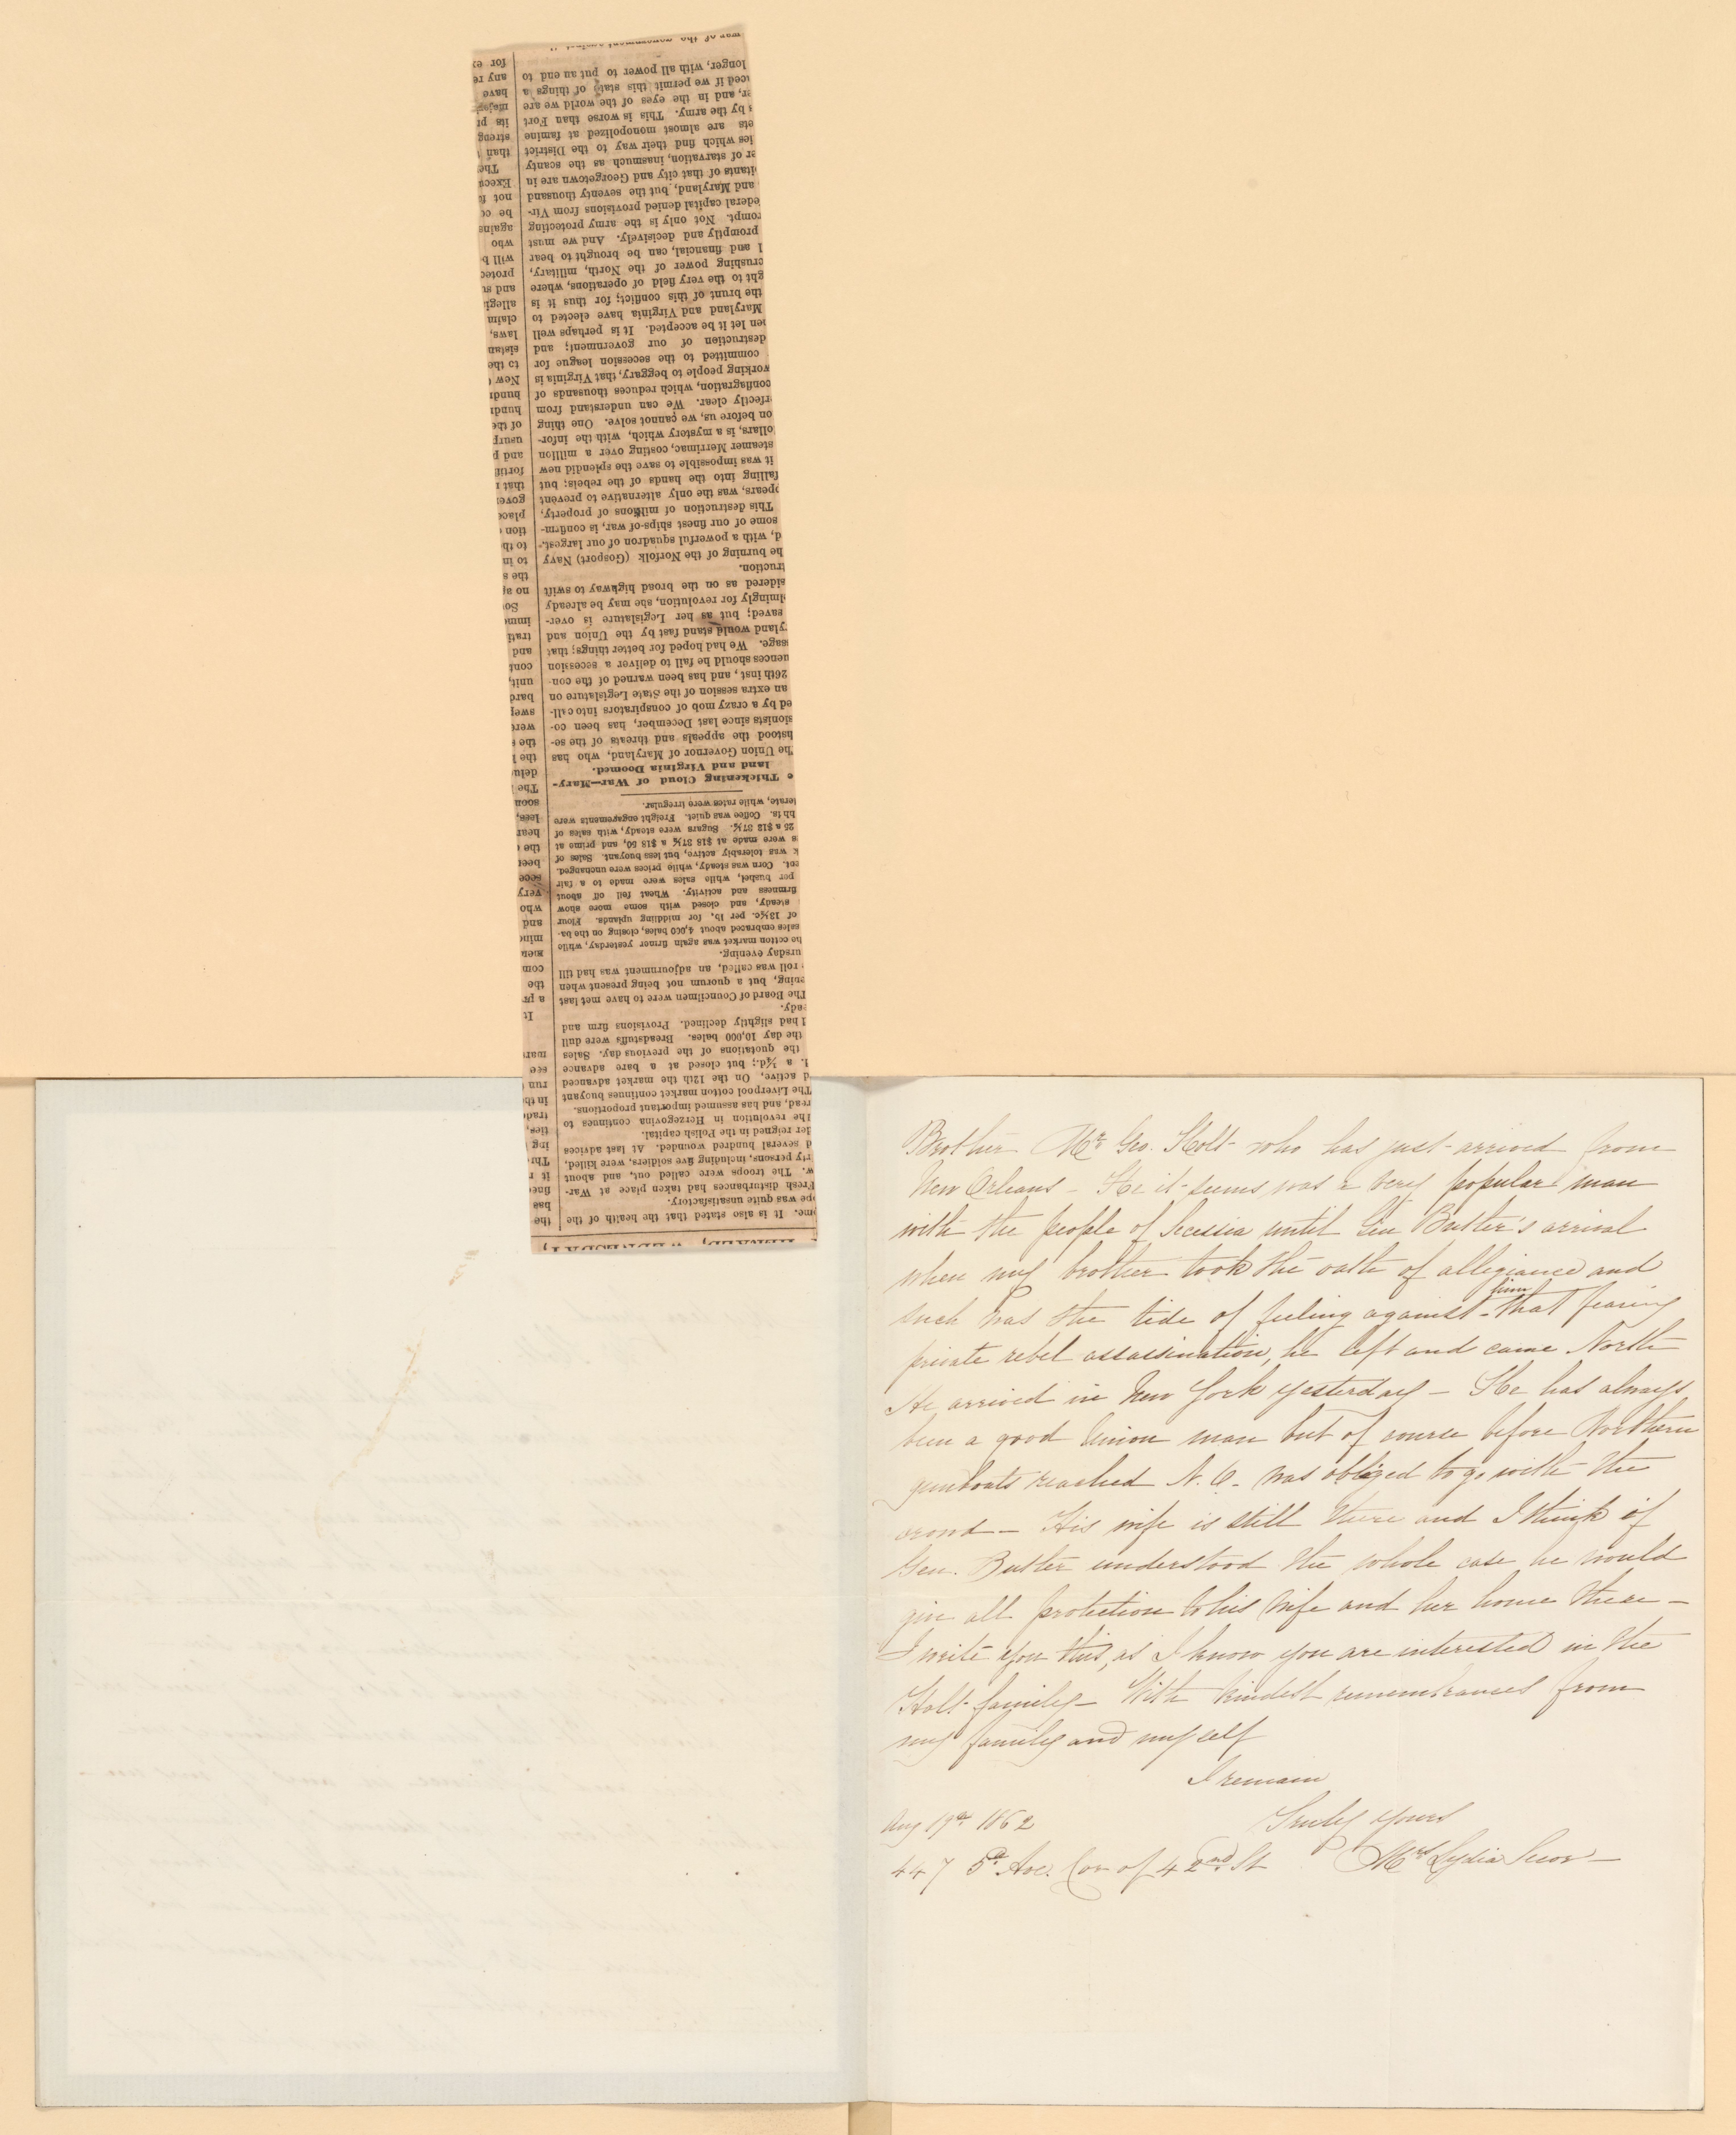 HERALD, WEDNESDAY,
me. It is also stated that the health of the
ope was quite unsatisfactory.
Fresh disturbances had taken place at War-
w. The troops were called out, and about
rty persons, including five soldiers, were killed,
d several hundred wounded. At last advices
der reigned in the Polish capital.
The revolution in Herzegovina continues to
read, and has assumed important proportions.
The Liverpool cotton market continues buoyant
d active. On the 12th the market advanced
d. a ¼d.; but closed at a bare advance
the quotations of the previous day. Sales
the day 10,000 bales. Breadstuffs were dull
d had slightly declined. Provisions firm and
eady.
The Board of Councilmen were to have met last
ening, but a quorum not being present when
roll was called, an adjournment was had till
ursday evening.
he cotton market was again firmer yesterday, while
sales embraced about 4,000 bales, closing on the ba-
of 13½c. per lb. for middling uplands. Flour
steady, and closed with some more show
firmness and activity. Wheat fell off about
per bushel, while sales were made to a fair
ent. Corn was steady, while prices were unchanged.
k was tolerably active, but less buoyant. Sales of
s were made at $18 37½ a $18 50, and prime at
25 a $13 37½. Sugars were steady, with sales of
hhds. Coffee was quiet. Freight engagements were
erate, while rates were irregular.
e Thickening Cloud of War—Mary-
land and Virginia Doomed.
he Union Governor of Maryland, who has
hstood the appeals and threats of the se-
sionists since last December, has been co-
ed by a crazy mob of conspirators into call-
an extra session of the State Legislature on
26th inst, and has been warned of the con-
uences should he fail to deliver a secession
ssage. We had hoped for better things; that
yland would stand fast by the Union and
saved; but as her Legislature is over-
lmingly for revolution, she may be already
sidered as on the broad highway to swift
truction.
he burning of the Norfolk (Gosport) Navy
d, with a powerful squadron of our largest,
some of our finest ships-of-war, is confirm-
This destruction of millions of property,
ppears, was the only alternative to prevent
falling into the hands of the rebels; but
it was impossible to save the splendid new
steamer Merrimac, costing over a million
ollars, is a mystery which, with the infor-
on before us, we cannot solve. One thing
rfectly clear. We can understand from
conflagration, which reduces thousands of
working people to beggary, that Virginia is
committed to the secession league for
destruction of our government; and
en let it be accepted. It is perhaps well
Maryland and Virginia have elected to
the brunt of this conflict; for thus it is
ght to the very field of operations, where
crushing power of the North, military,
l and financial, can be brought to bear
promptly and decisively. And we must
rompt. Not only is the army protecting
ederal capital denied provisions from Vir-
and Maryland, but the seventy thousand
itants of that city and Georgetown are in
er of starvation, inasmuch as the scanty
ies which find their way to the District
ets are almost monopolized at famine
s by the army. This is worse than Fort
er, and in the eyes of the world we are
aced if we permit this state of things a
longer, with all power to put an end to
war of the government against
Brother Mr. Geo. Holt who has just arrived from
New Orleans – He it seems was a very popular man
with the people of Secessia until Gen Butler's arrival
when my brother took the oath of allegiance and
such was the tide of feeling against him that fearing
private rebel assassination, he left and came North
He arrived in New York yesterday – He has always
been a good Union man but of course before Northern
gunboats reached N.O. was obliged to go with the
crowd – His wife is still there and I think if
Gen. Butler understood the whole case he would
give all protection to his wife and her home there –
I write you this, as I know you are interested in the
Holt family – With kindest remembrances from
my family and myself
I remain
Truly yours
Aug 19th 1862
Mrs Lydia Secor –
447 5th Ave. Cor of 42nd St